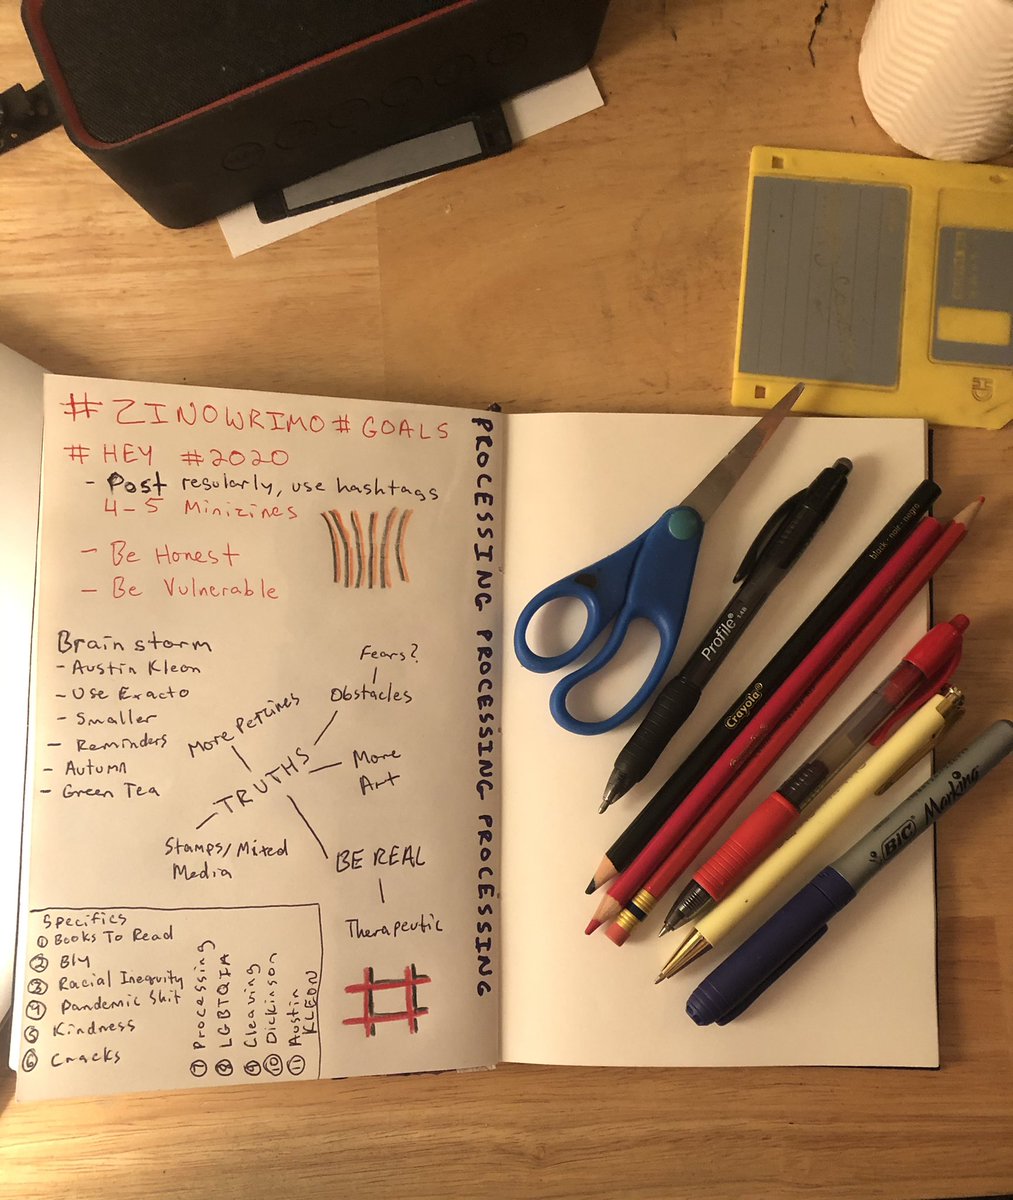 # ZINOWRIMO # GOALS
# HEY #2020
- Post regularly, use hashtags
4-5 Minizines
- Be Honest
- Be Vulnerable
Brainstorm
- Austin Kleon
- Use Exacto
- Smaller
- Reminders
- Autumn
- Green Tea
Fears?
Obstacles
More Perzines
TRUTHS
More
Art
Stamps/Mixed
Media
BE REAL
Therapeutic
Specifics
1 Books To Read
2 BLY
3 Racial Inequity
4 Pandemic Shit
5 Kindness
6 Cracks
7 Processing
8 LGBTQIA
9 Cleaving
10 Dickinson
11 Austin
KLEON
#
PROCESSING PROCESSING PROCESSING PROCESSING
Profile 1.4B
black · noir · negro
Crayola
BIC Marking
HD